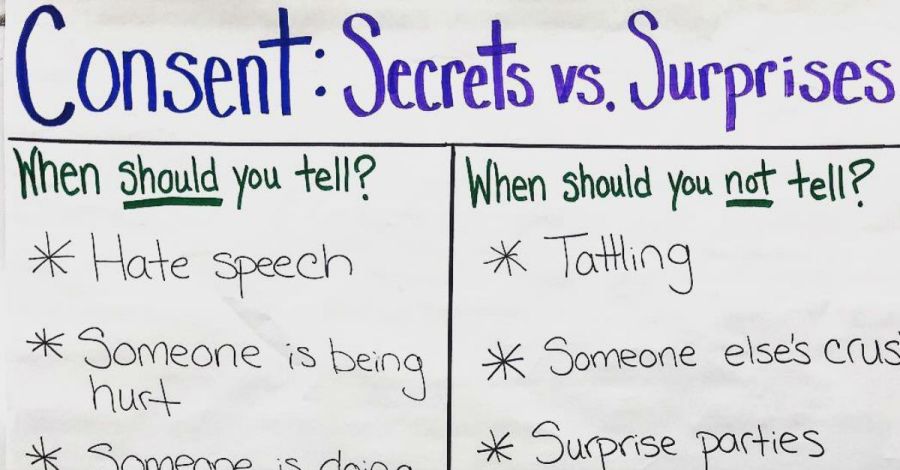 Consent: Secrets vs. Surprises
When should you tell?
* Hate speech
* Someone is being
hurt
* Someone is doing
When should you not tell?
* Tattling
* Someone else's
* Surprise parties